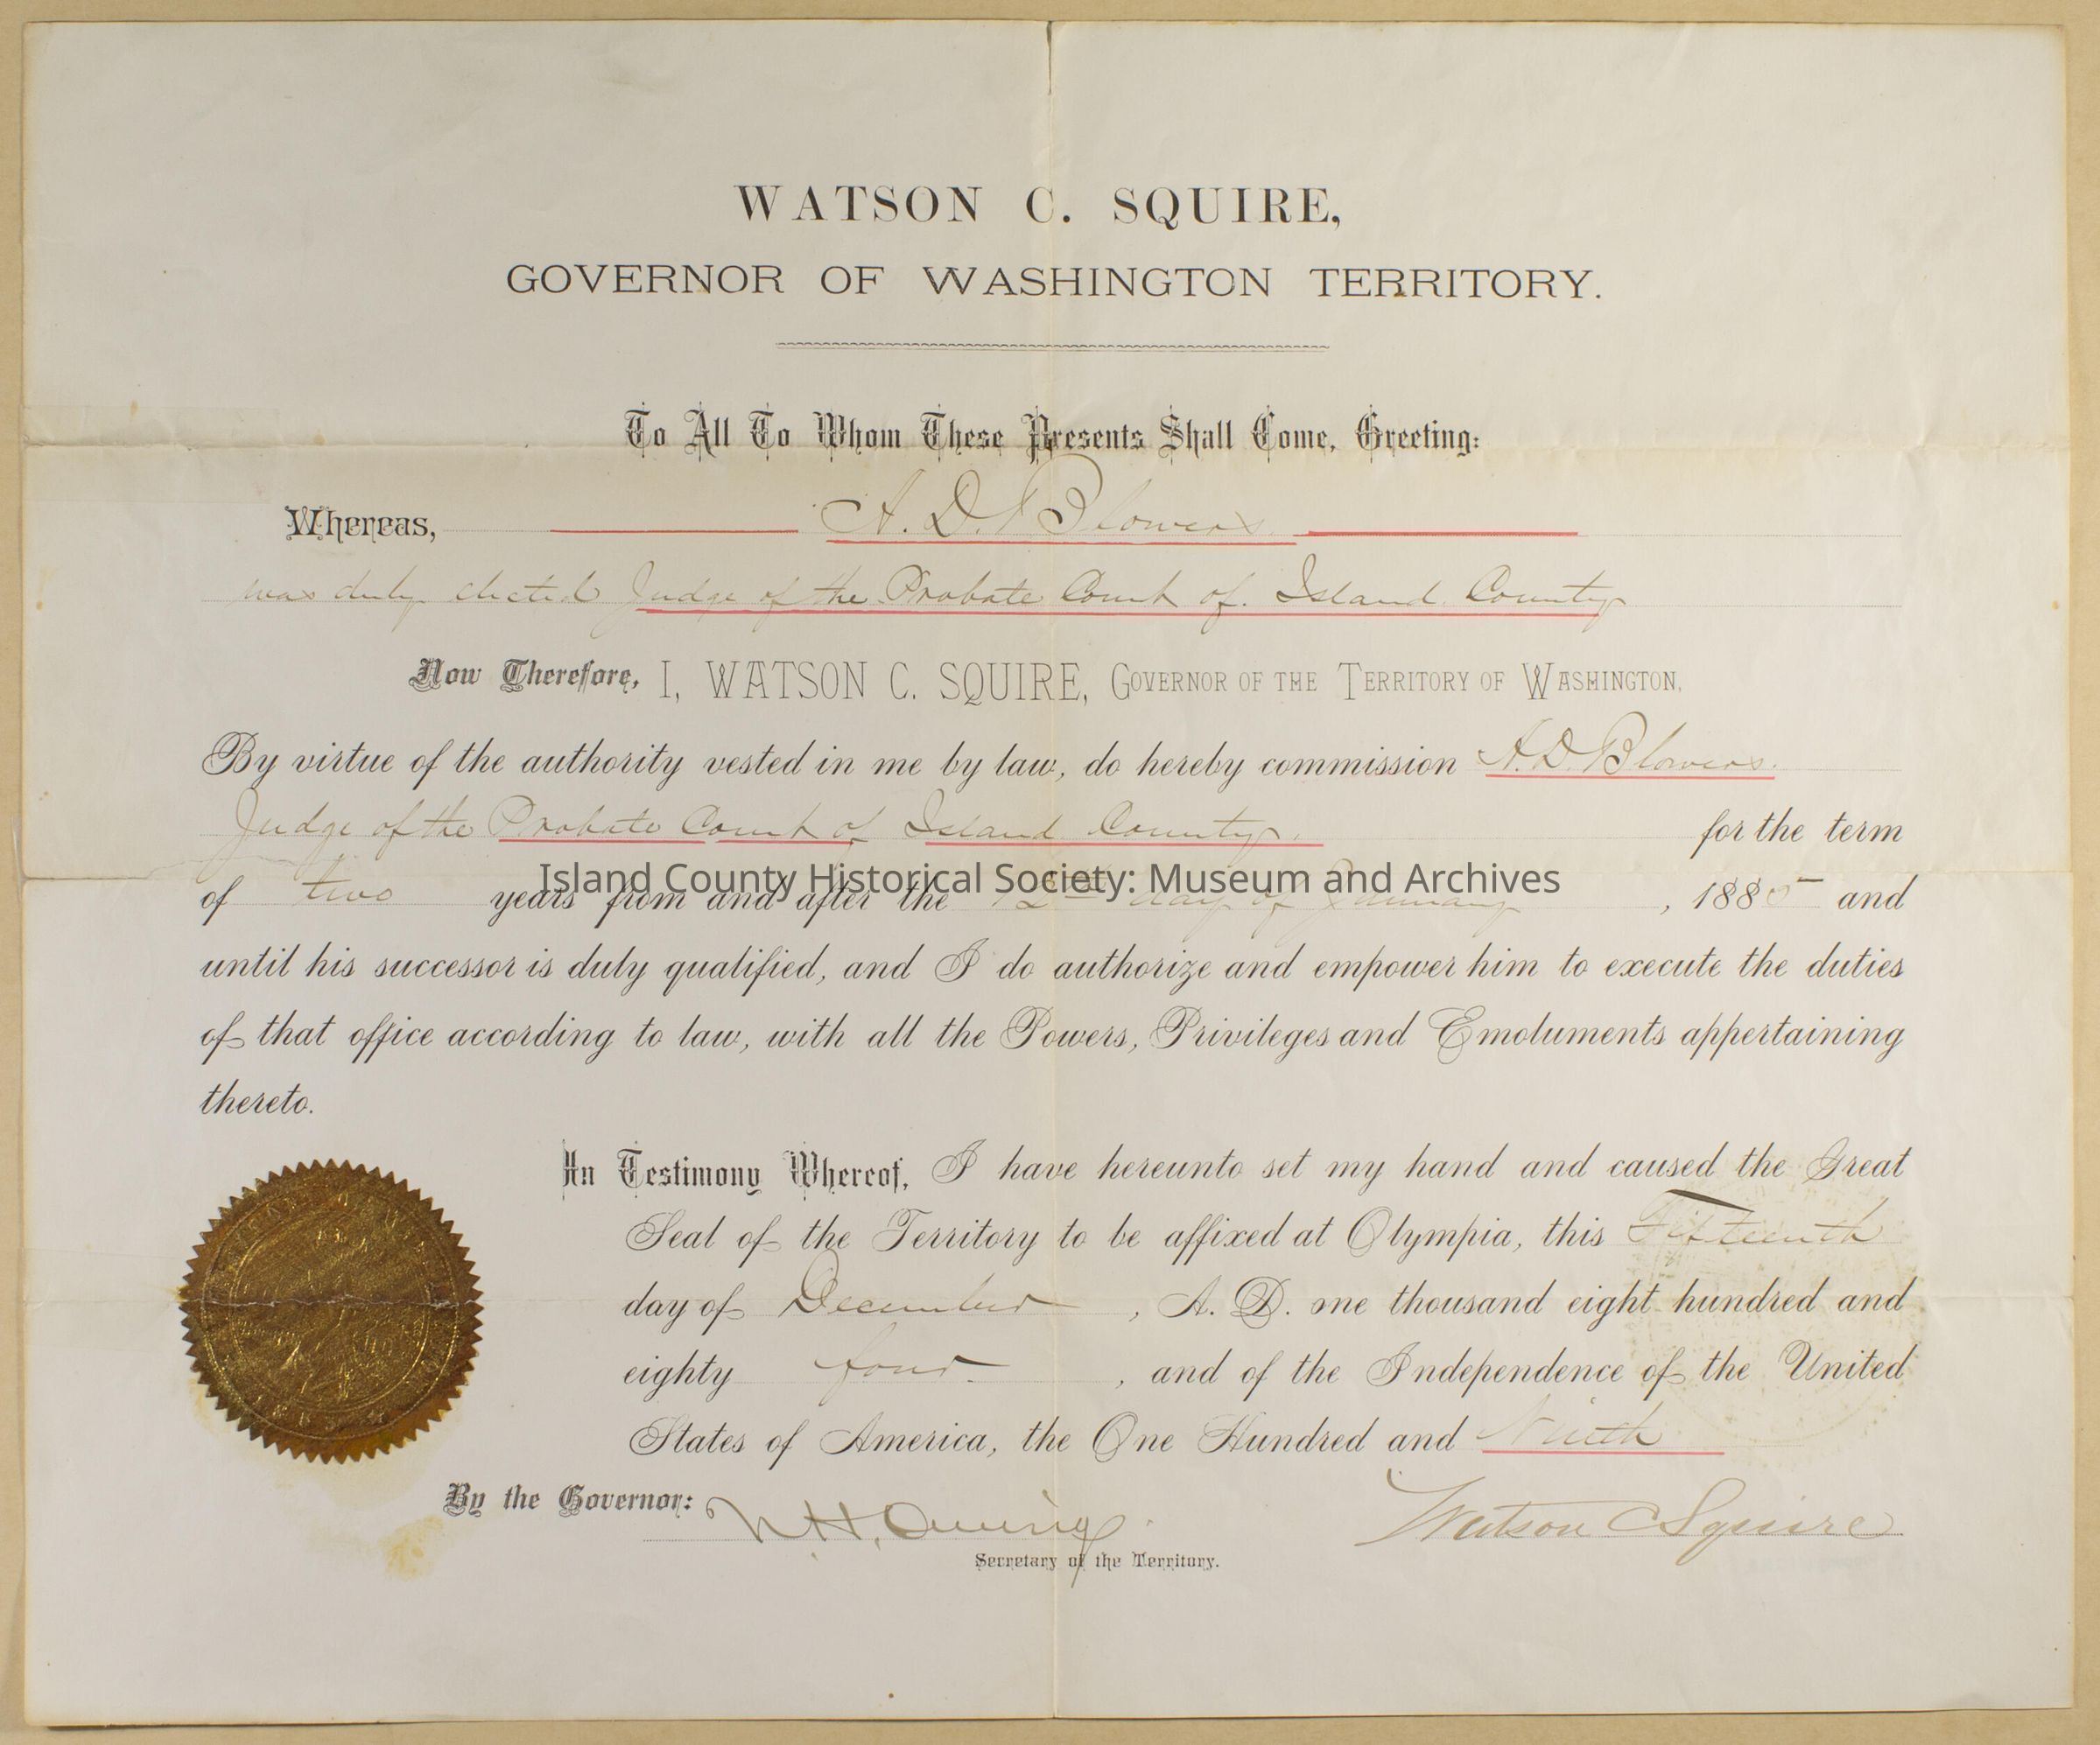 WATSON C. SQUIRE,
GOVERNOR OF WASHINGTON TERRITORY.
To All To Whom These Presents Shall Come, Greeting:
Whereas, A. D. Blowers
was duly elected Judge of the Probate Court of Island County
Now Therefore, I, WATSON C. SQUIRE, GOVERNOR OF THE TERRITORY OF WASHINGTON,
By virtue of the authority vested in me by law, do hereby commission A. D. Blowers.
Judge of the Probate Court of Island County. for the term
Island County Historical Society: Museum and Archives
of two years from and after the 12th day of January, 1885 and
until his successor is duly qualified, and I do authorize and empower him to execute the duties
of that office according to law, with all the Powers, Privileges and Emoluments appertaining
thereto.
In Testimony Whereof, I have hereunto set my hand and caused the Great
Seal of the Territory to be affixed at Olympia, this Fifteenth
day of December, A. D. one thousand eight hundred and
eighty four, and of the Independence of the United
States of America, the One Hundred and Ninth
By the Governor: N. H. Owings Watson C Squire
Secretary of the Territory.